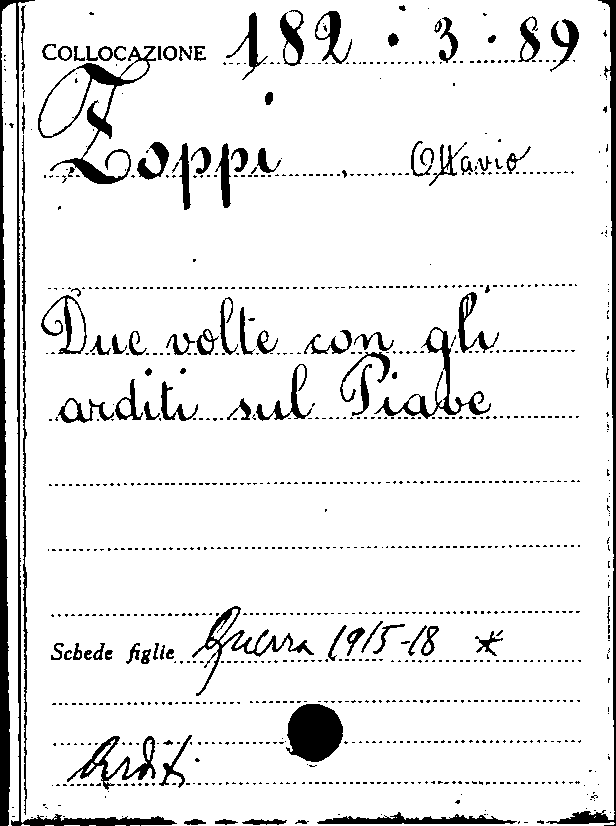 COLLOCAZIONE 182 . 3 . 89
Zoppi , Ottavio
Due volte con gli
arditi sul Piave
Schede figlie Guerra 1915-18 *
Arditi